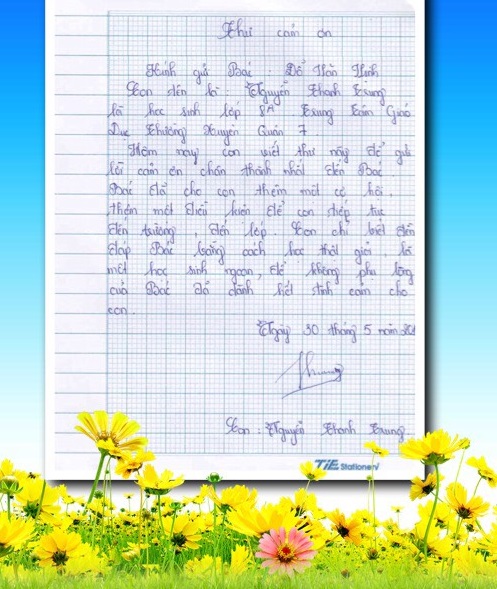 Thư cảm ơn
Kính gửi Bác : Đỗ Văn Minh
Con tên là : Nguyễn Thành Trung
là học sinh lớp 8A Trung Tâm Giáo
Dục Thường Xuyên Quận 7
Hôm nay con viết thư này để gửi
lời cảm ơn chân thành nhất đến Bác
Bác đã cho con thêm một cơ hội,
thêm một điều kiện để con tiếp tục
đến trường, đến lớp. Con chỉ biết đền
đáp Bác bằng cách học thật giỏi, là
một học sinh ngoan, để không phụ lòng
của Bác đã dành hết tình cảm cho
con.
Ngày 30 tháng 5 năm
Con : Nguyễn Thành Trung
TiE Stationery